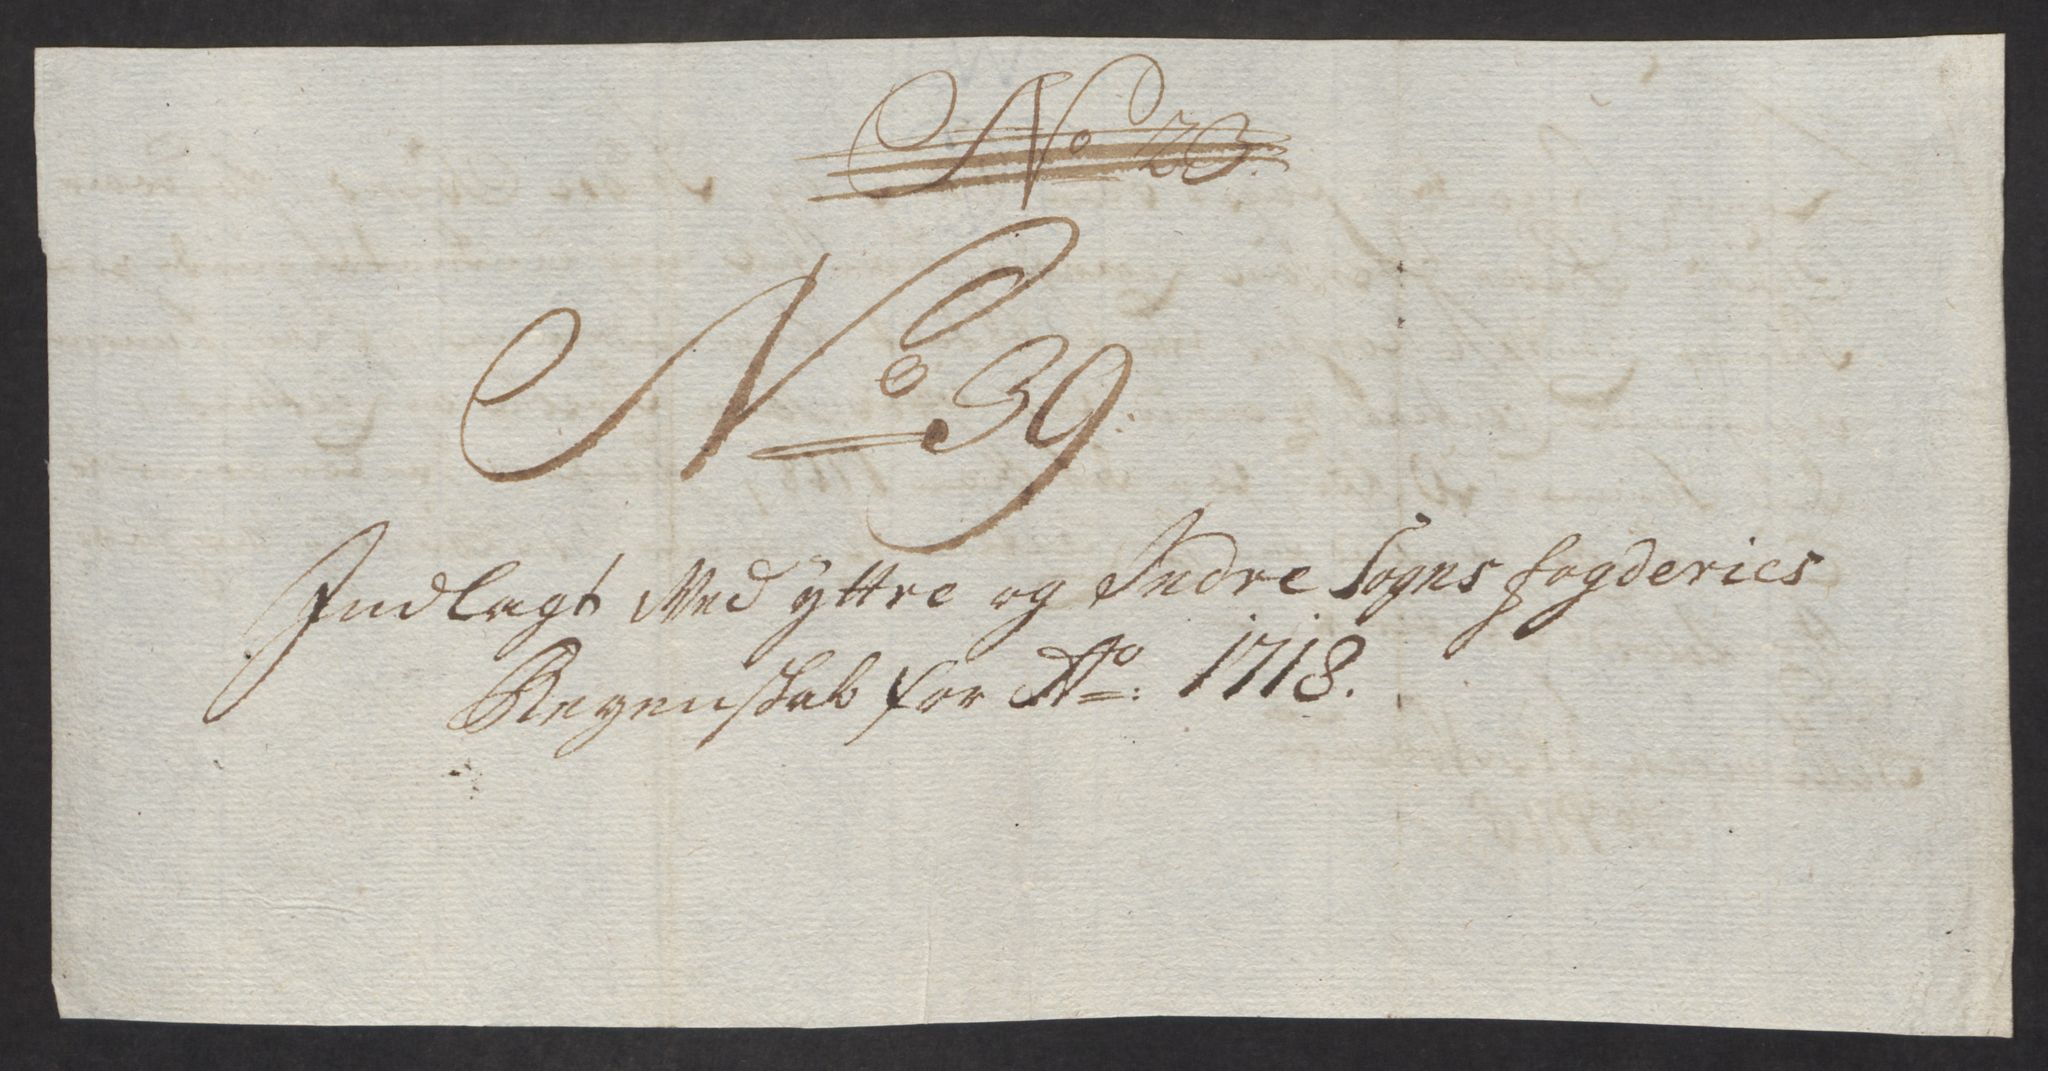 No 23.
No 39.
Indlagt Med yttre og Indre Sogns fogderies
Regenskab for Ao: 1718.